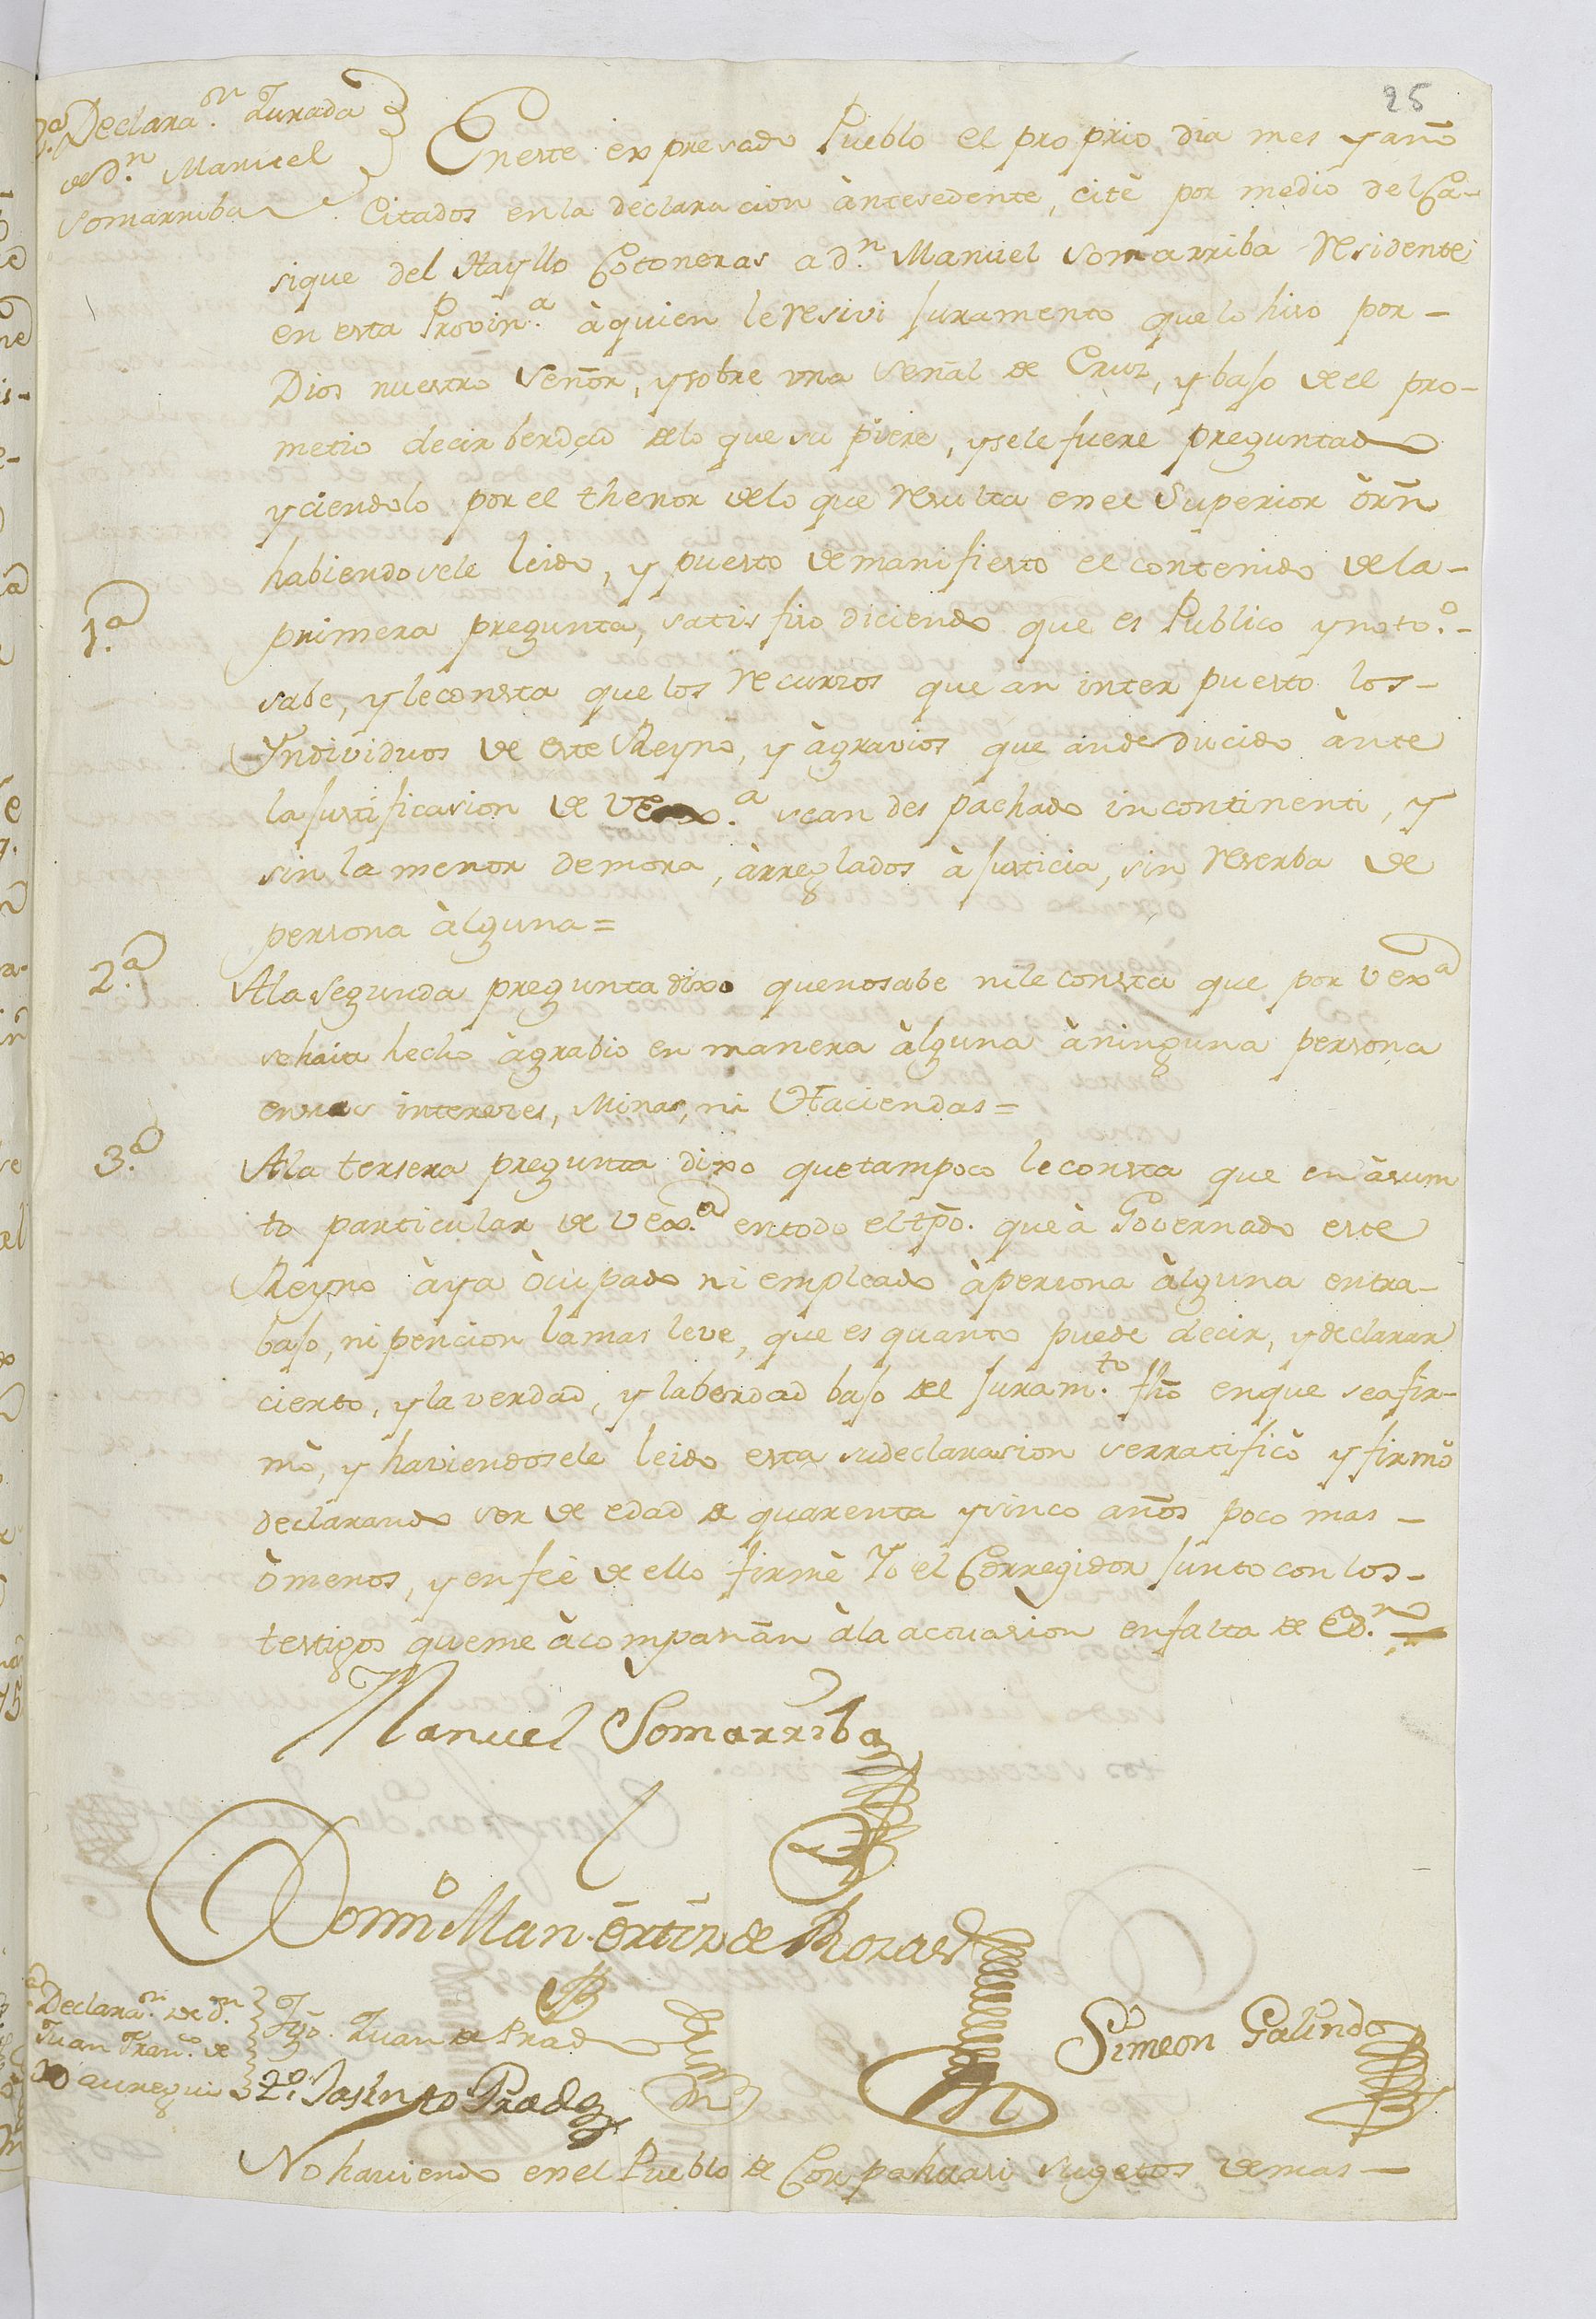 25
Declara.on Jurada
de d.n Manuel
Somarriba
En este expresado Pueblo el proprio dia mes y año
Citados en la declaracion àntesedente, citè por medio del Ca-
sique del Hayllo Cotoneras a d.n Manuel Somarriba residente
en esta Provin.a à quien le resivi Juramento que lo hiso por-
Dios nuestro Señor, y sobre una señal de Cruz, y bajo de el pro-
metio decir berdad de lo que supiere, y sele fuere preguntado
y ciendolo por el thenor de lo que resulta en el Superior òrñ
habiendosele leido, y puesto de manifiesto el contenido de la-
1.a
primera pregunta, satisfiso diciendo que es Publico y noto.o-
sabe, y le consta que los recurzos que an inter puesto los-
Yndividuos de este Reyno, y àgravios que an deducido ànte
la Justificasion de VEx.a sean des pachado incontinenti, y
sin la menor demora, àrreglados à Justicia, sin reserba de
persona àlguna=
2.a
Ala segunda pregunta dixo que no sabe ni le consta que por VExa
se haia hecho àgrabio en manera àlguna à ninguna persona
en sus intereses, Minas, ni Haciendas=
3.a
Ala tersera pregunta dixo que tampoco le consta que en àsum
to particular de VEx.a en todo el tpo. que à Governado este
Reyno àya òcupado ni empleado à persona àlguna en tra-
bajo, ni pencion la mas leve, que es quanto puede decir, y declarar
cierto, y la verdad, y la berdad bajo del Juram.to fho en que se afir-
mò, y haviendosele leido esta su declarasion se rratificò y firmò
declarando ser de edad de quarenta y sinco años poco mas-
ò menos, y en feè de ello firmè Yo el Corregidor Junto con los-
testigos que me àcompañan à la actuasion en falta de Es.no
Manuel Somarriba
Domo Man. Ortiz de Rozas
Declara.on de d.n
Juan Fran.co de
Jauregui
Tgo. Juan de Prado
Simeon Galindo
2.o Jasinto Prado
No haviendo en el Pueblo de Corpahuasi sugetos de mas-